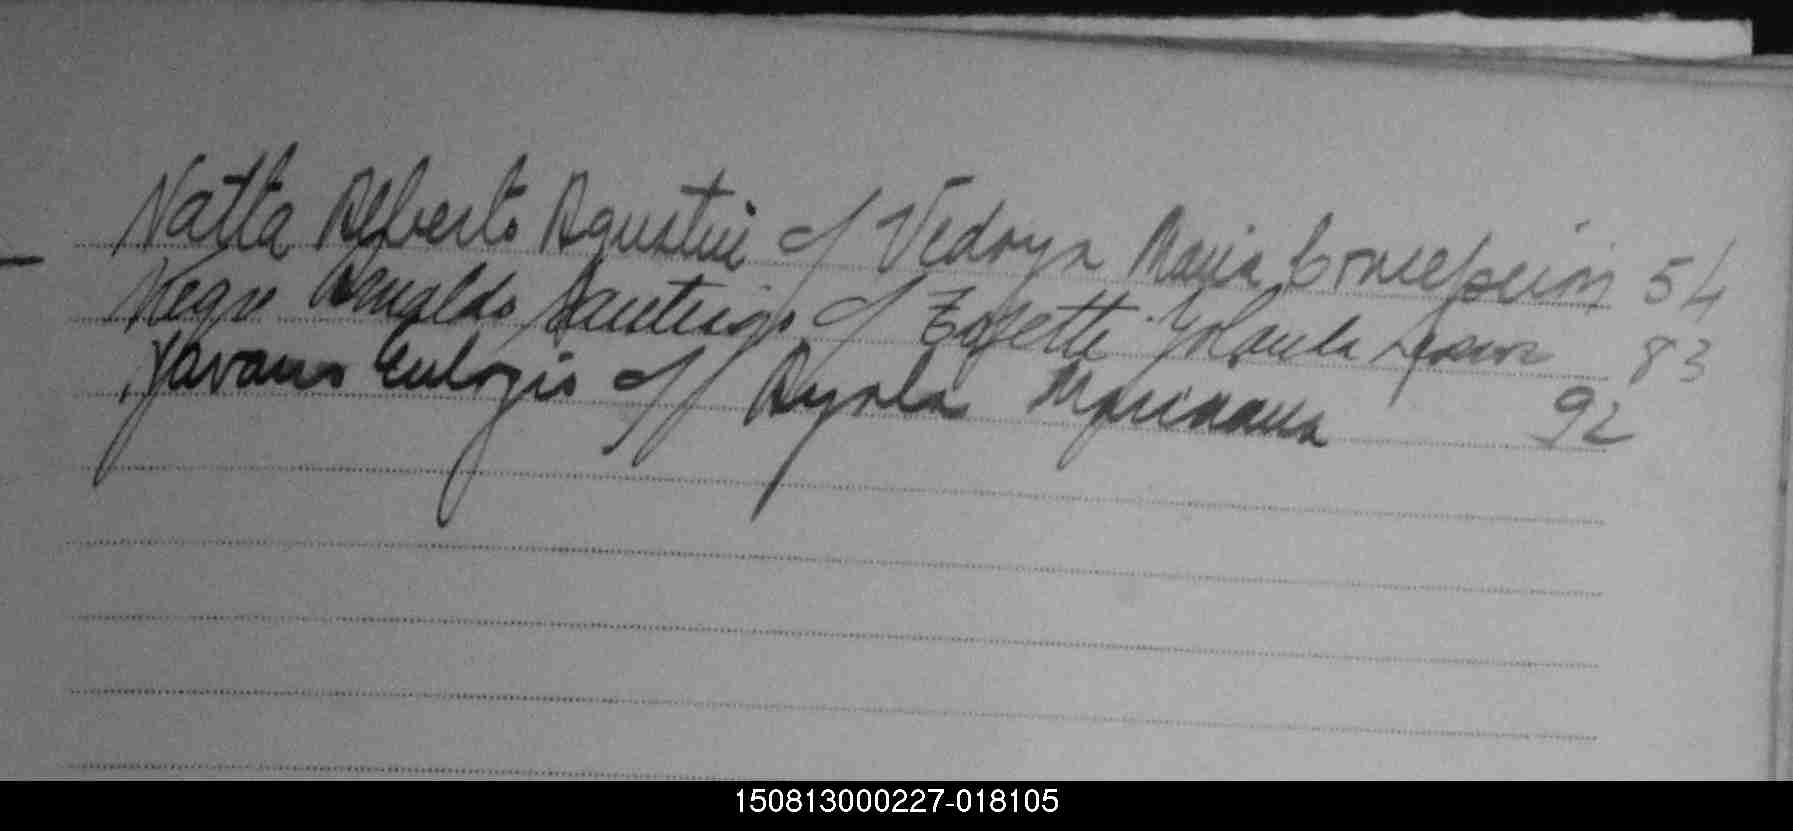 Natta Alberto Agustin c/ Vedoya Maria Concepcion 54
Negro Osvaldo Santiago c/ Zoffetti Yolanda 83
Navarro Eulogio c/ Ayala Marciana 92
150813000227-018105